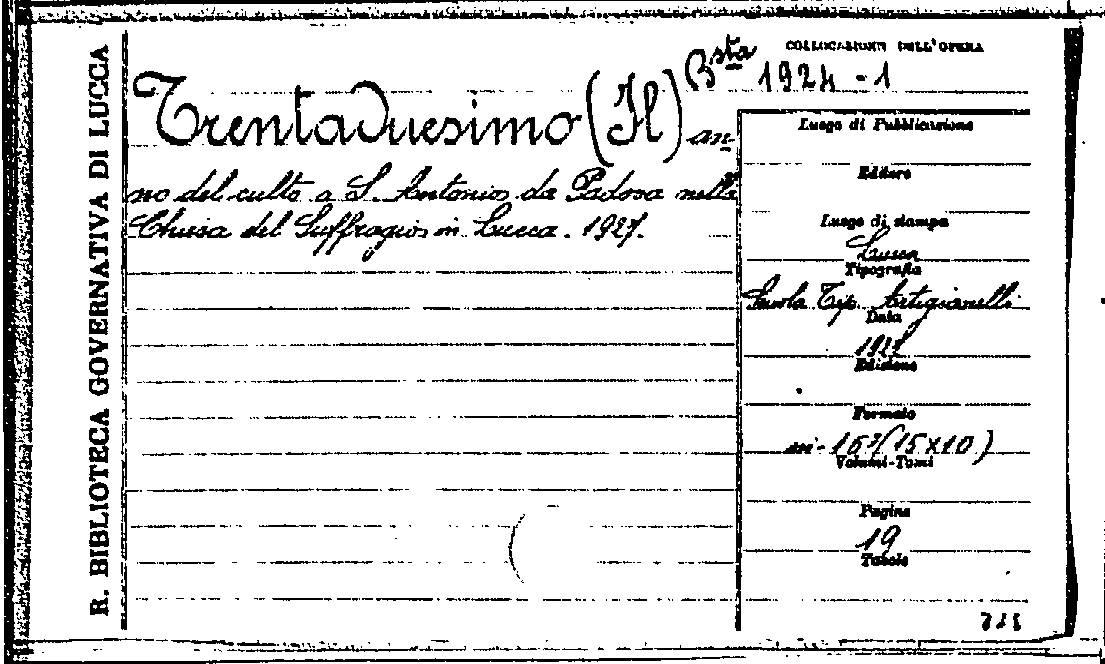 R. BIBLIOTECA GOVERNATIVA DI LUCCA
COLLOCAZIONE DELL'OPERA
Bsta 1924 - 1
Trentaduesimo (Il) an-
no del culto a S. Antonio da Padova nella
Chiesa del Suffragio in Lucca. 1927.
Luogo di Pubblicazione
Editore
Luogo di stampa
Lucca
Tipografia
Scuola Tip. Artigianelli
Data
1927
Edizione
Formato
in-16º (15x10)
Volumi-Tomi
Pagine
19
Tavole